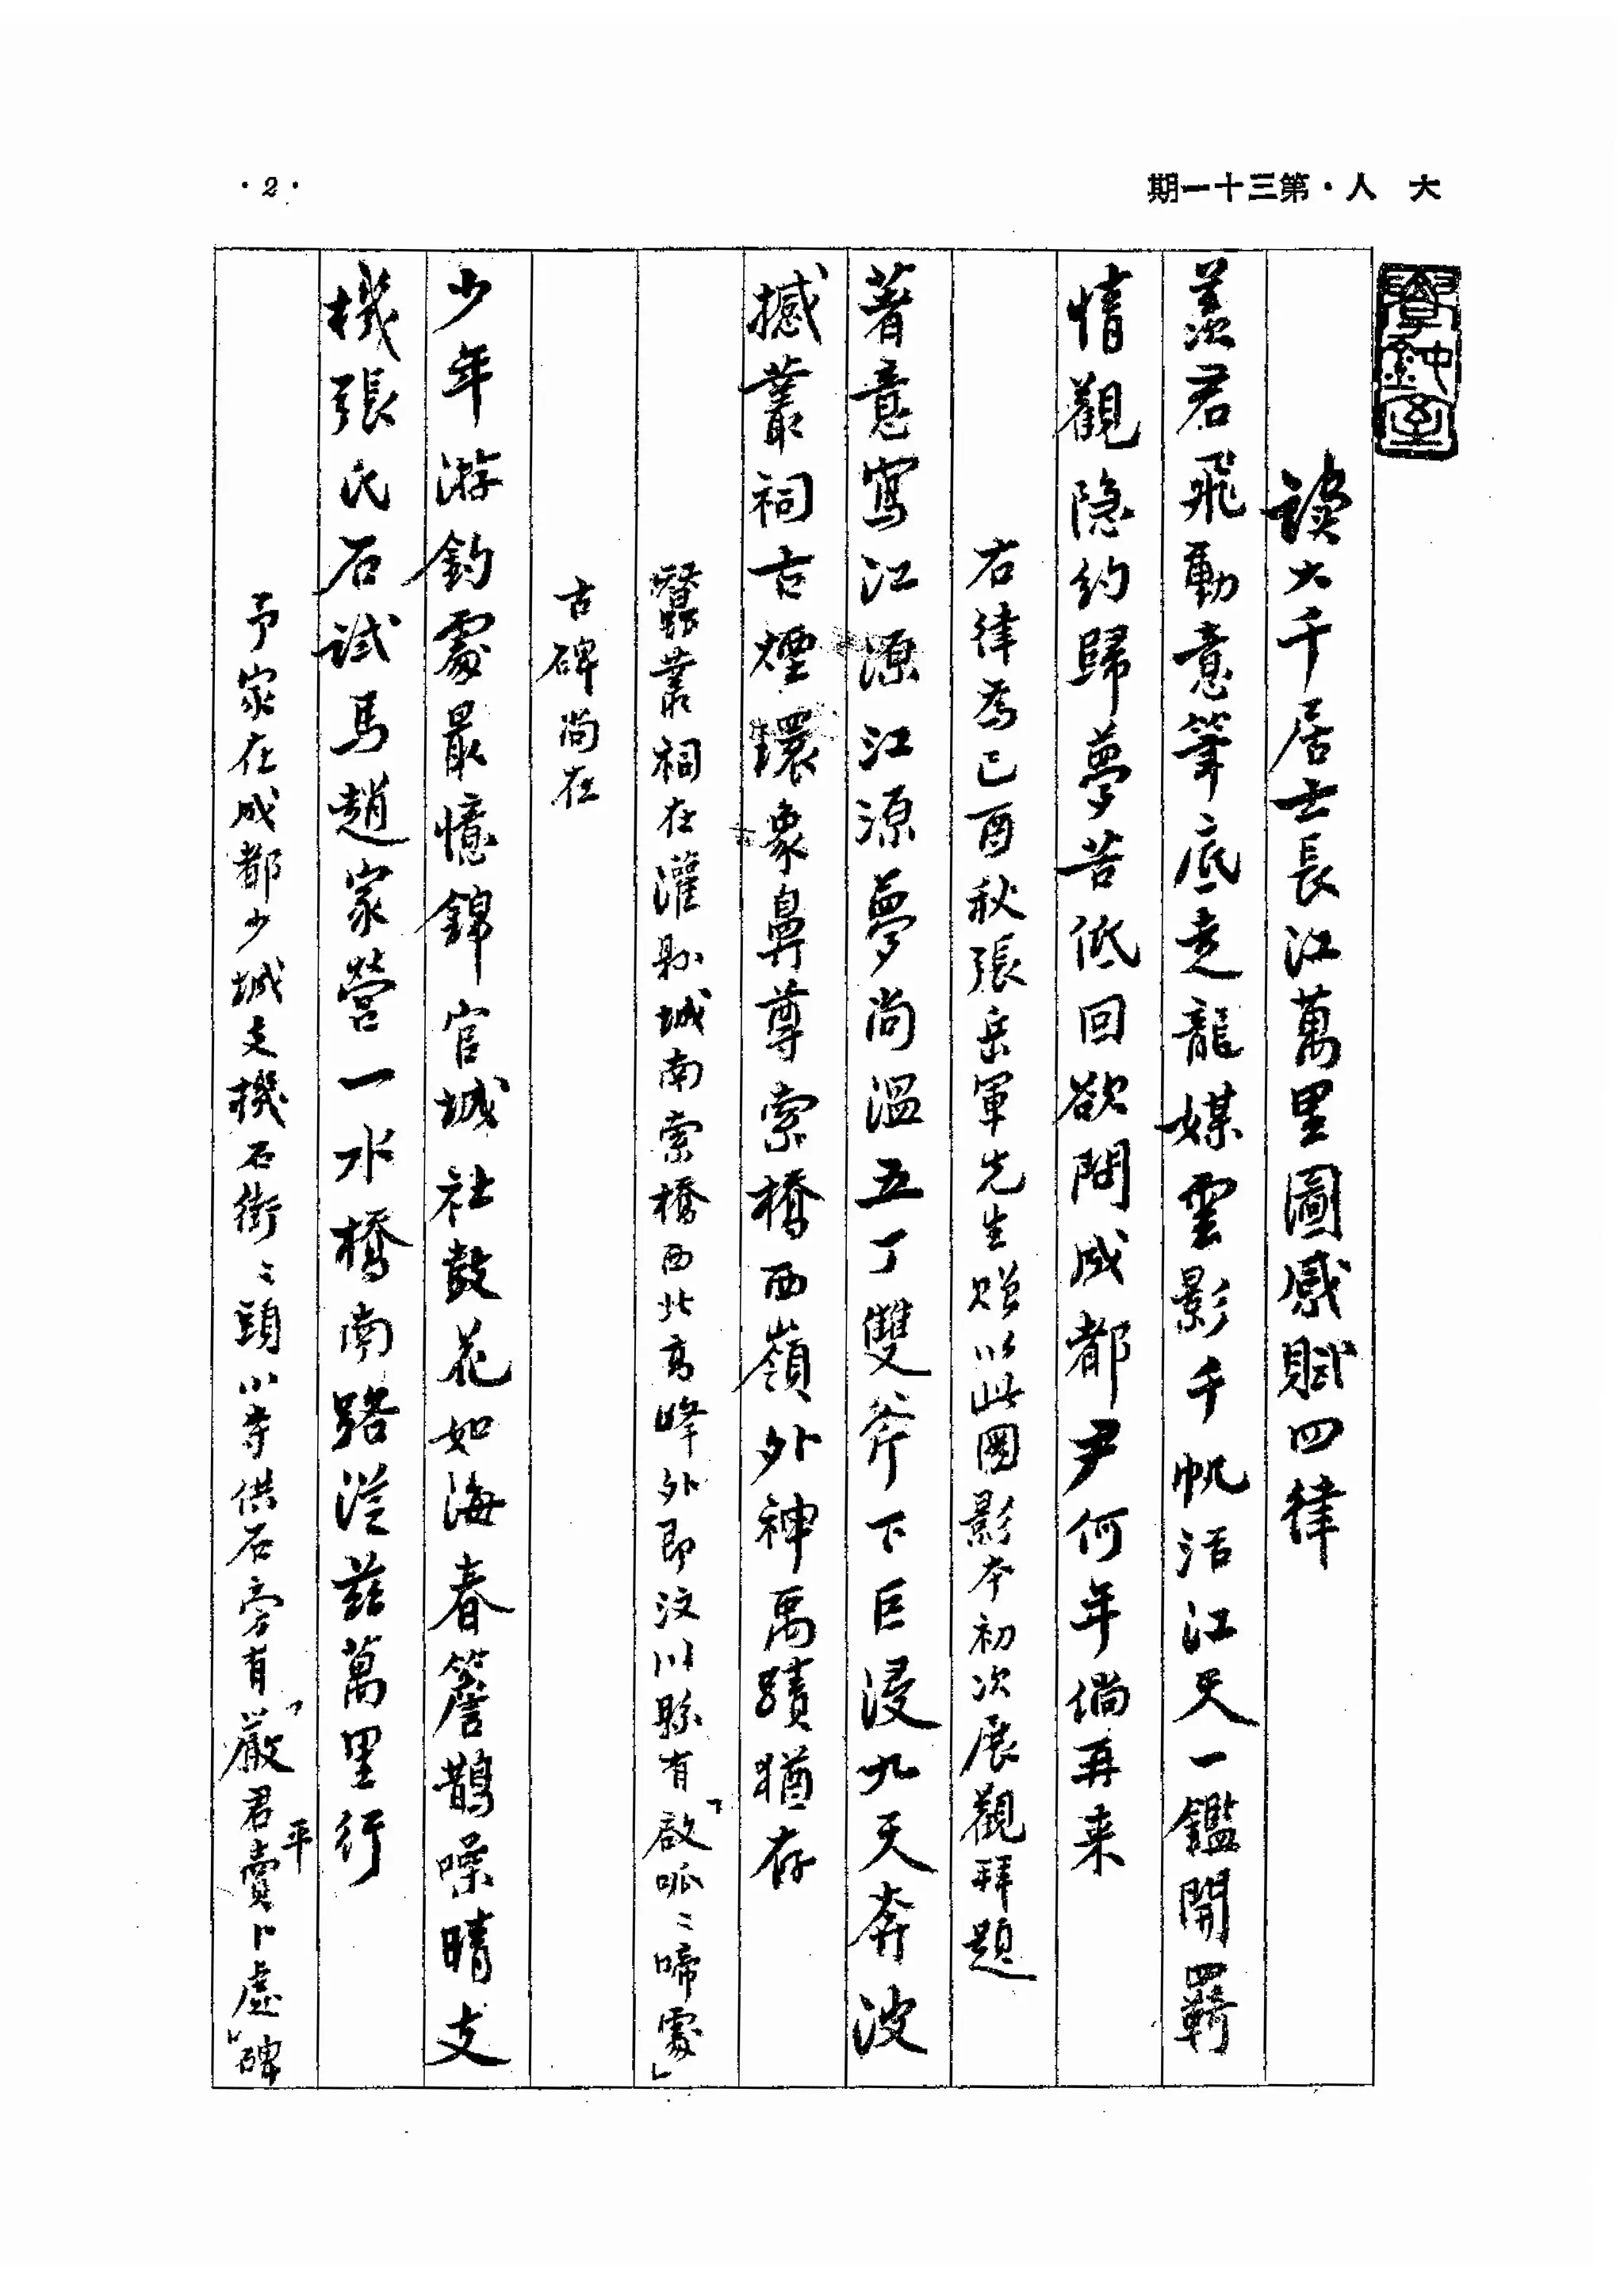 大人・第三十一期
・2・
讀大千居士長江萬里圖感賦四律
羨君飛動意筆底走龍媒雲影千帆活江天一鑑開羈
情觀隐約歸夢苦低回欲問成都尹何年倘再来
右律為己酉秋張岳軍先生贈以此圖影本初次展觀拜題
著意寫江源江源夢尚溫五丁雙斧下巨浸九天奔波
撼叢祠古煙環象鼻尊索橋西嶺外神禹蹟猶存
蠶叢祠在灌縣城南索橋西北高峰外即汶川縣有「啟呱〻啼處」
古碑尚在
少年游釣處最憶錦官城社鼓花如海春簷鵲噪晴支
機張氏石試馬趙家營一水橋南路從兹萬里行
予家在成都少城支機石街〻頭小寺供石旁有「嚴君平賣卜處」碑